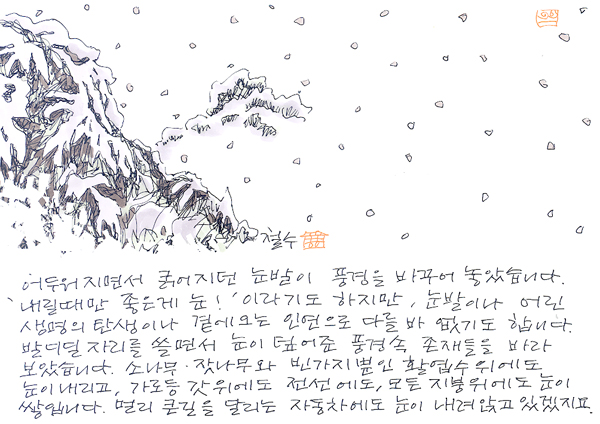 철수
어두워지면서 굵어지던 눈발이 풍경을 바꾸어 놓았습니다.
'내릴때만 좋은게 눈!' 이라기도 하지만, 눈발이나 어린
생명의 탄생이나 곁에오는 인연으로 다를 바 없기도 합니다.
발디딜 자리를 쓸면서 눈이 덮어준 풍경속 존재들을 바라
보았습니다. 소나무·잣나무와 빈가지뿐인 활엽수위에도
눈이내리고, 가로등 갓위에도 전선에도, 모든 지붕위에도 눈이
쌓입니다. 멀리 큰길을 달리는 자동차에도 눈이 내려앉고 있겠지요.